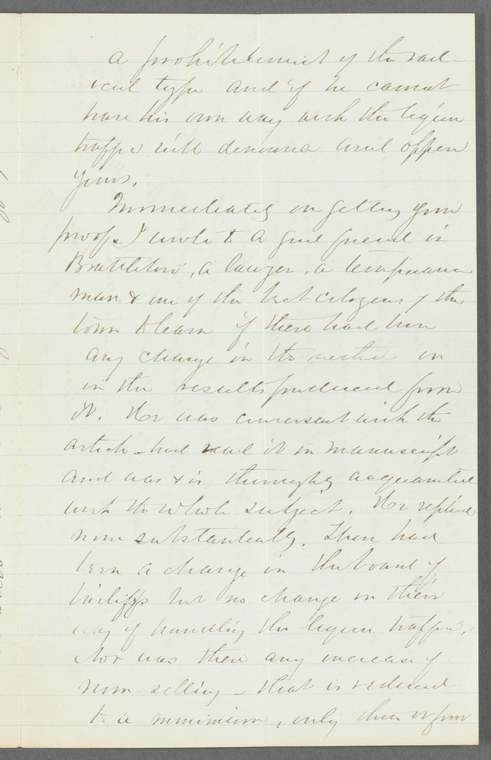 a prohibitionist of the rad-
ical type and if he cannot
have his own way with the liquor
traffic will denounce and oppose
yours.
Immediately on getting your
proof I wrote to a good friend in
Brattleboro, a lawyer, a temperance
man & one of the best citizens of the
town to learn if there had been
any change in the method or
in the results produced from
it. He was conversant with the
article - had read it in manuscript
and was & is thoroughly acquainted
with the whole subject. He replied
none substantially. There had
been a change in the board of
bailiffs but no change in their
way of handling the liquor traffic.
Nor was there any increase of
rum-selling - that is reduced
to a minimum, only three or four